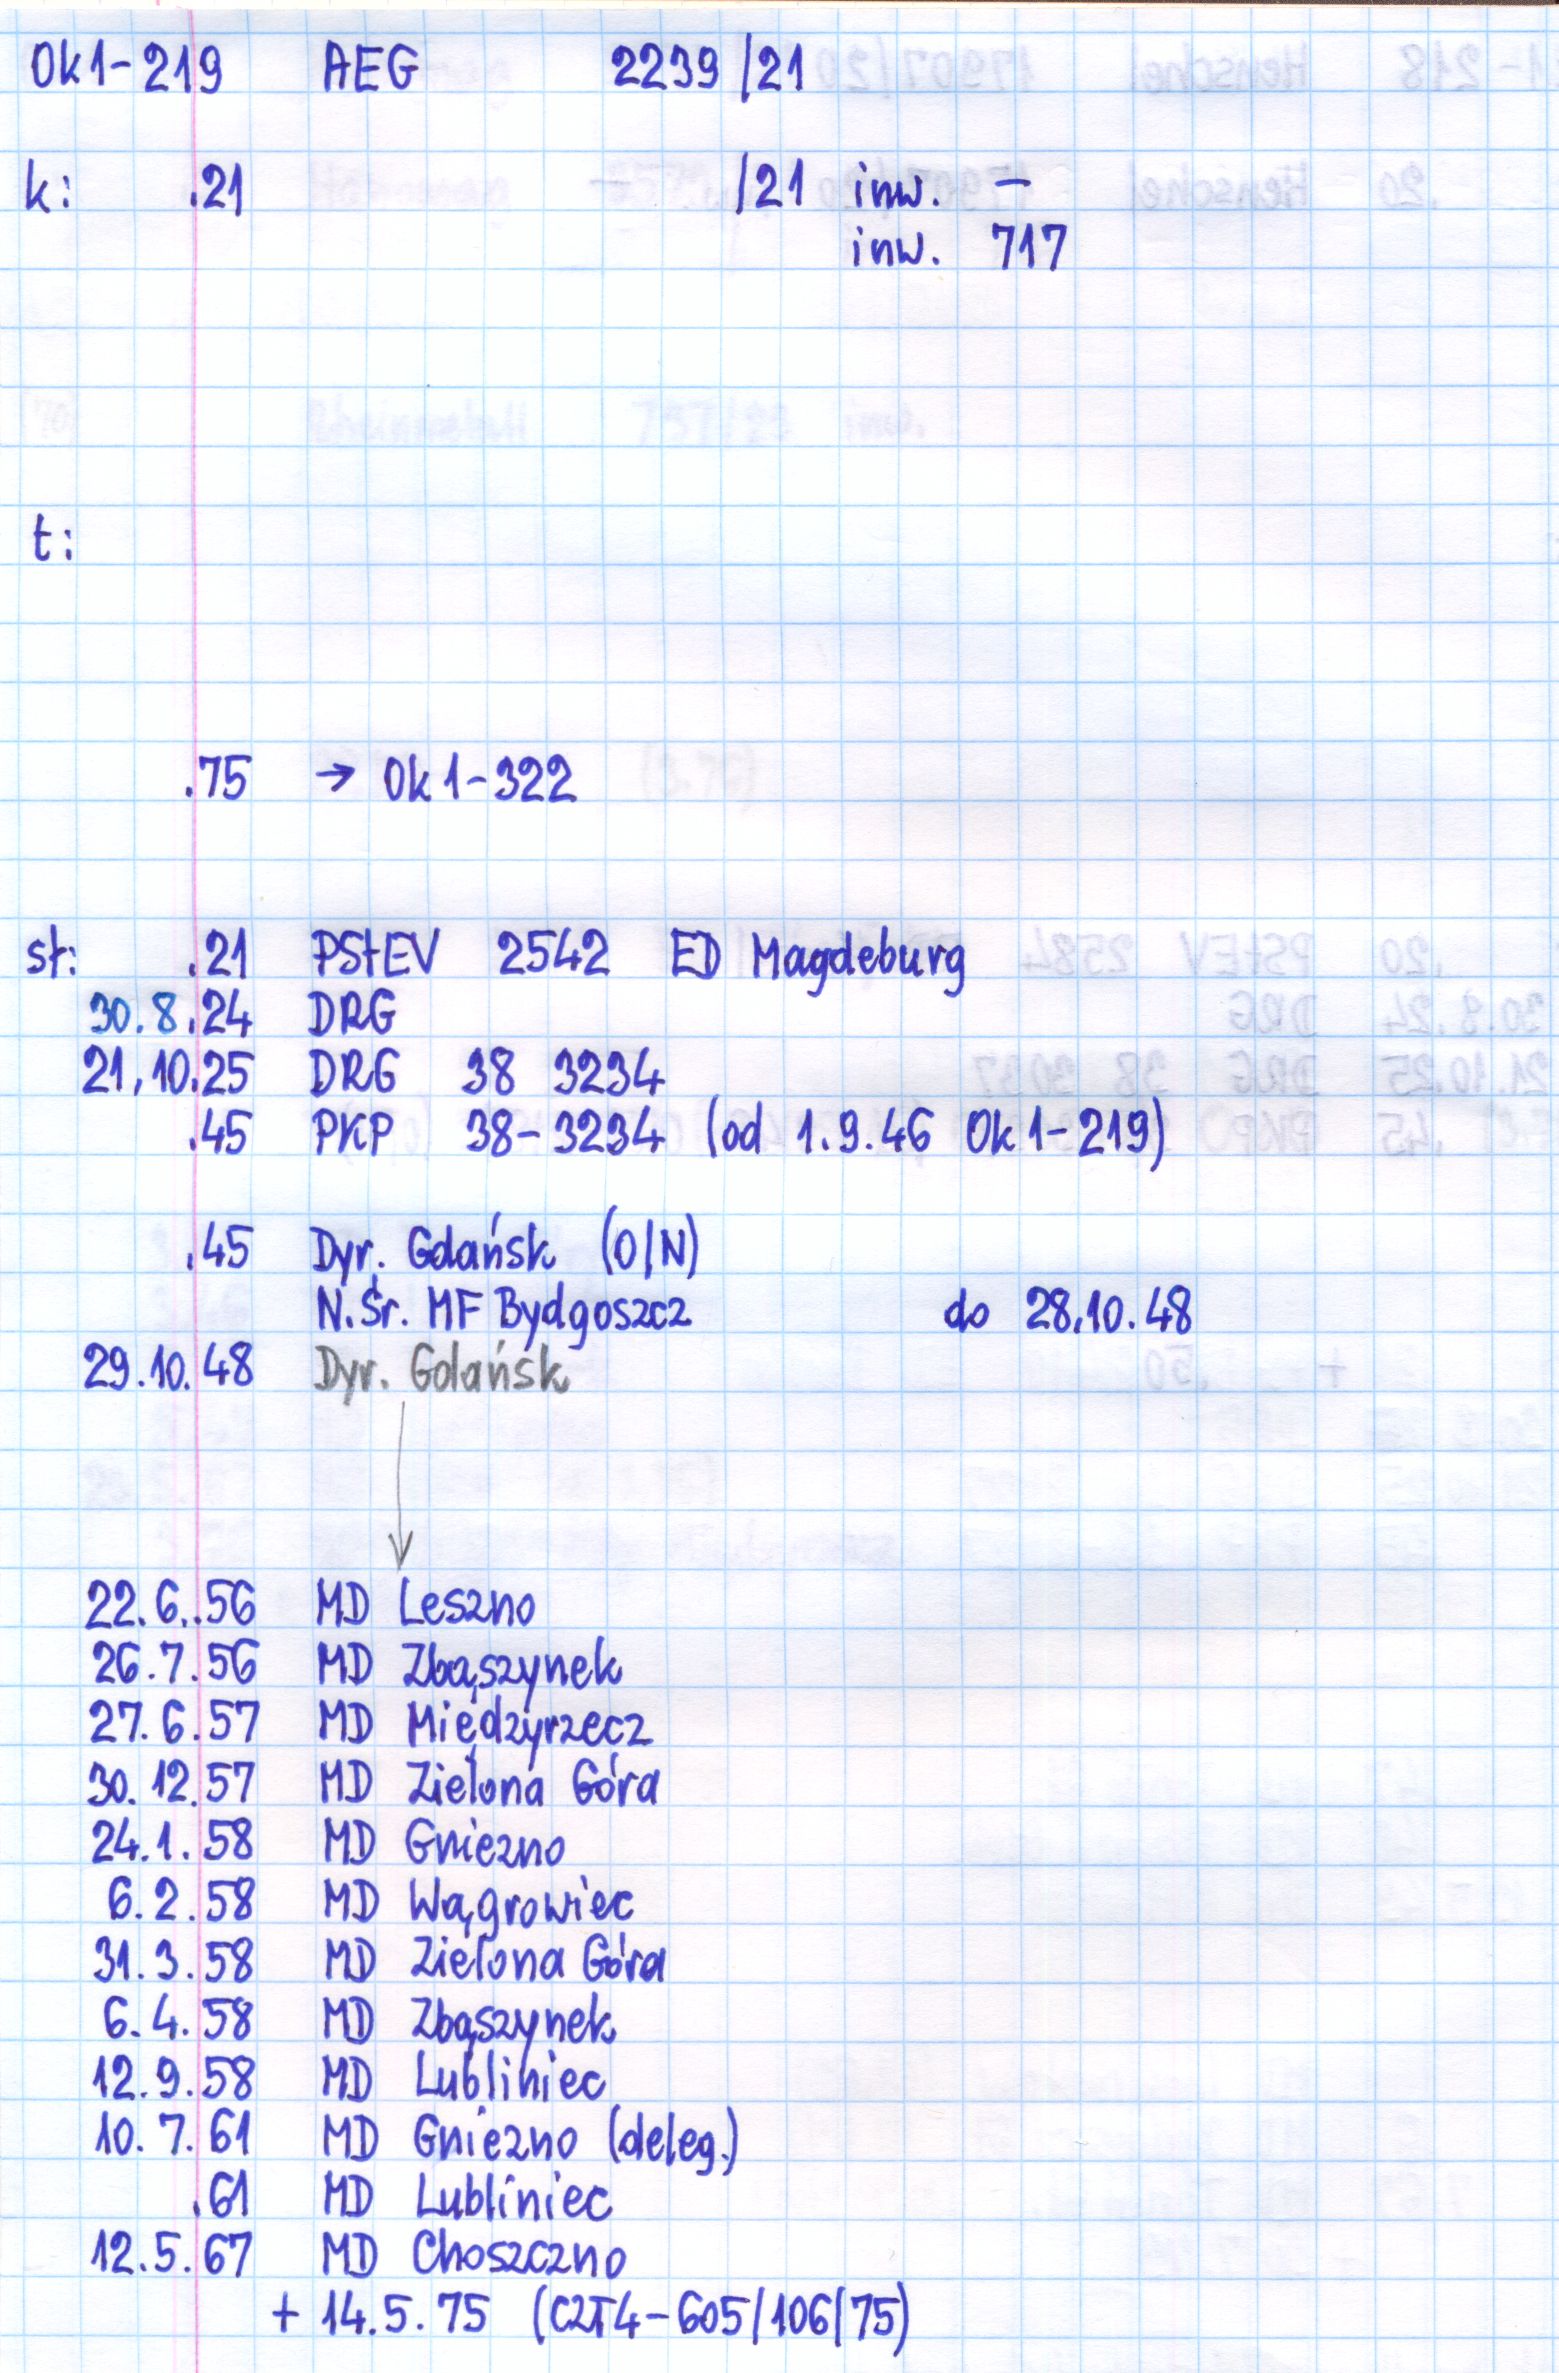 Ok1-219 AEG 2239/21
k: .21 /21 inw. —
inw. 717
t:
.75 → Ok1-322
st: .21 PStEV 2542 ED Magdeburg
30.8.24 DRG
21.10.25 DRG 38 3234
.45 PKP 38-3234 (od 1.9.46 Ok1-219)
.45 Dyr. Gdańsk (O/N)
N.Śr. MF Bydgoszcz do 28.10.48
29.10.48 Dyr. Gdańsk
22.6.56 MD Leszno
26.7.56 MD Zbąszynek
27.6.57 MD Międzyrzecz
30.12.57 MD Zielona Góra
24.1.58 MD Gniezno
6.2.58 MD Wągrowiec
31.3.58 MD Zielona Góra
6.4.58 MD Zbąszynek
12.9.58 MD Lubliniec
10.7.61 MD Gniezno (deleg.)
.61 MD Lubliniec
12.5.67 MD Choszczno
+ 14.5.75 (CZT4-605/106/75)